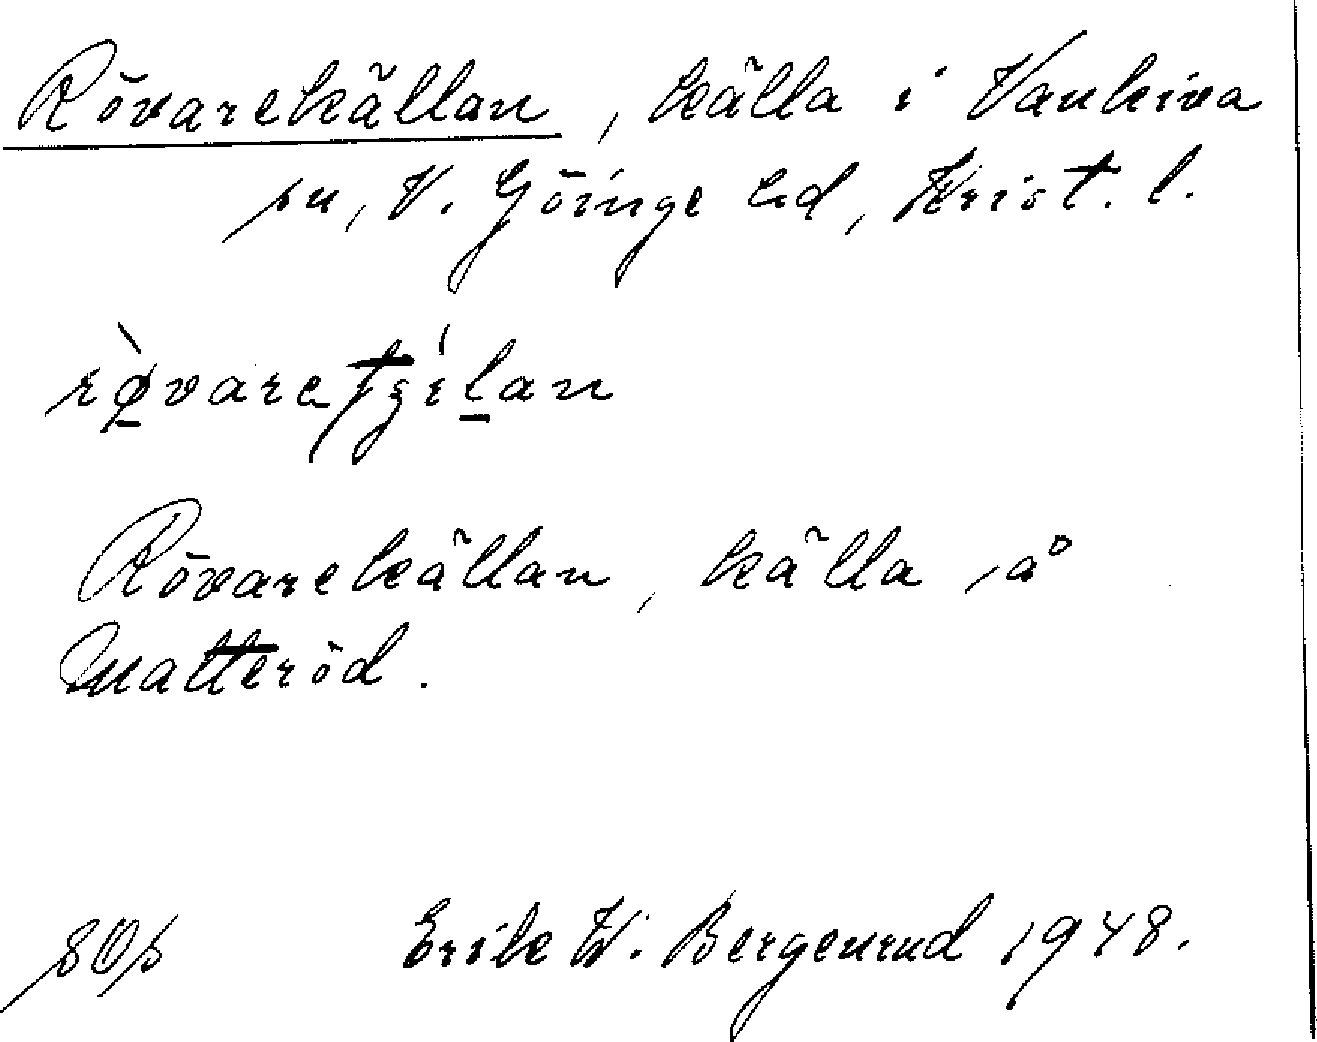 Rövarekällan, källa i Vankiva
sn, V. Göinge hd, Krist. l.
Rövarekällan, källa på
Matteröd.
Erik K. Bergenrud 1948.